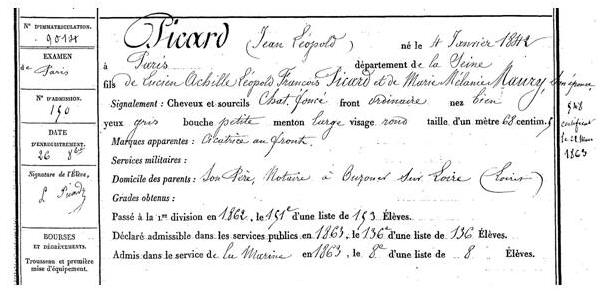 N° D'IMMATRICULATION.
9014
EXAMEN
de Paris
N° D'ADMISSION.
150
DATE
D'ENREGISTREMENT.
26 8bre
Signature de l'Élève,
L Picard
BOURSES
ET DÉGRÈVEMENTS.
Trousseau et première
mise d'équipement.
Picard (Jean Léopold) né le 4 Janvier 1842
à Paris département de la Seine
fils de Lucien Achille Léopold François Picard et de Marie Mélanie Maury, son épouse
Signalement : Cheveux et sourcils Chat. foncé front ordinaire nez bien
yeux gris bouche petite menton large visage rond taille d'un mètre 68 centim. 5
Marques apparentes : Cicatrice au front.
Services militaires :
Domicile des parents : Son Père, Notaire à Ouzouer sur Loire (Loiret)
Grades obtenus :
Passé à la 1re division en 1862, le 151e d'une liste de 153 Élèves.
Déclaré admissible dans les services publics en 1863, le 136e d'une liste de 136 Élèves.
Admis dans le service de la Marine en 1863, le 8e d'une liste de 8 Élèves.
548
certificat
le 21
1863